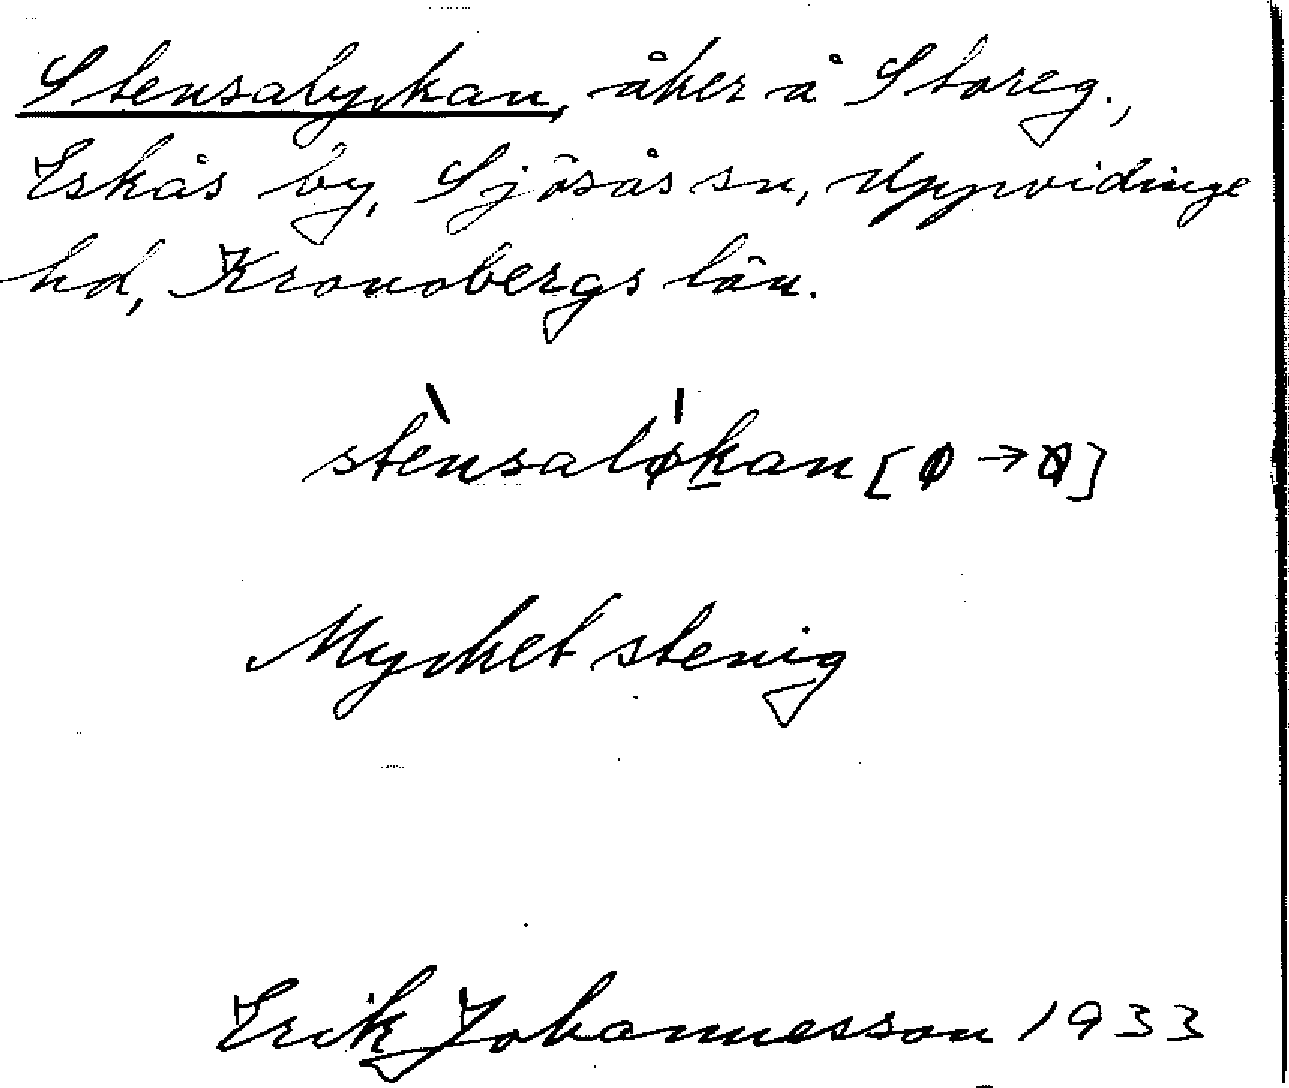 Stensalyckan, åker å Storeg.,
Eskås by, Sjösås sn, Uppvidinge
hd, Kronobergs län.
stènsaløkan [ø →
Mycket stenig
Erik Johannesson 1933